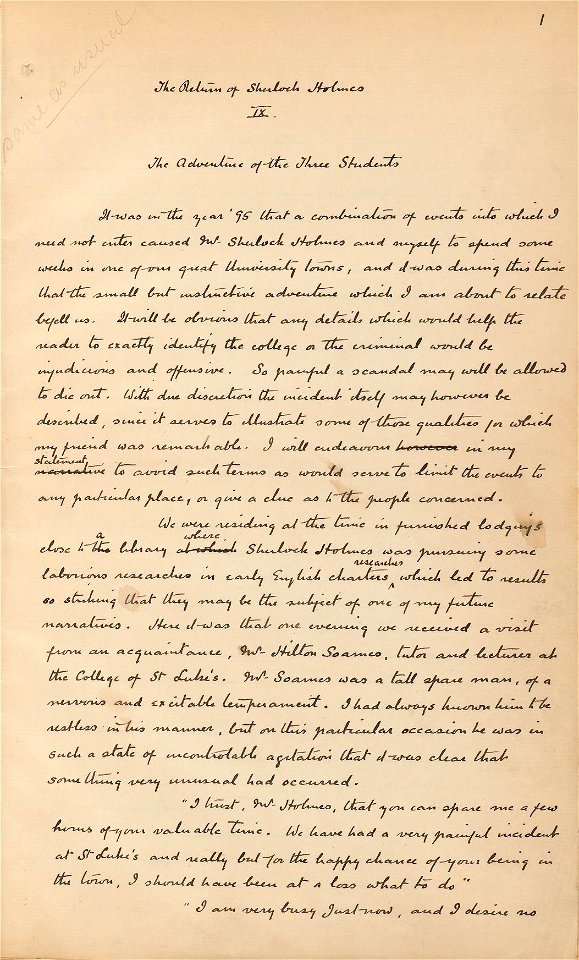 1
same as usual
The Return of Sherlock Holmes
IX.
The Adventure of the Three Students
It was in the year '95 that a combination of events into which I
need not enter caused Mr. Sherlock Holmes and myself to spend some
weeks in one of our great University towns, and it was during this time
that the small but instructive adventure which I am about to relate
befell us. It will be obvious that any details which would help the
reader to exactly identify the college or the criminal would be
injudicious and offensive. So painful a scandal may well be allowed
to die out. With due discretion the incident itself may however be
described, since it serves to illustrate some of those qualities for which
my friend was remarkable. I will endeavour however in my
statement
narrative to avoid such terms as would serve to limit the events to
any particular place, or give a clue as to the people concerned.
We were residing at the time in furnished lodgings
a where
close to the library at which Sherlock Holmes was pursuing some
researches
laborious researches in early English charters, which led to results
so striking that they may be the subject of one of my future
narratives. Here it was that one evening we received a visit
from an acquaintance, Mr. Hilton Soames, tutor and lecturer at
the College of St Luke's. Mr. Soames was a tall spare man, of a
nervous and excitable temperament. I had always known him to be
restless in his manner, but on this particular occasion he was in
such a state of uncontrolable agitation that it was clear that
something very unusual had occurred.
"I trust, Mr. Holmes, that you can spare me a few
hours of your valuable time. We have had a very painful incident
at St Luke's and really but for the happy chance of your being in
the town, I should have been at a loss what to do"
"I am very busy just now, and I desire no